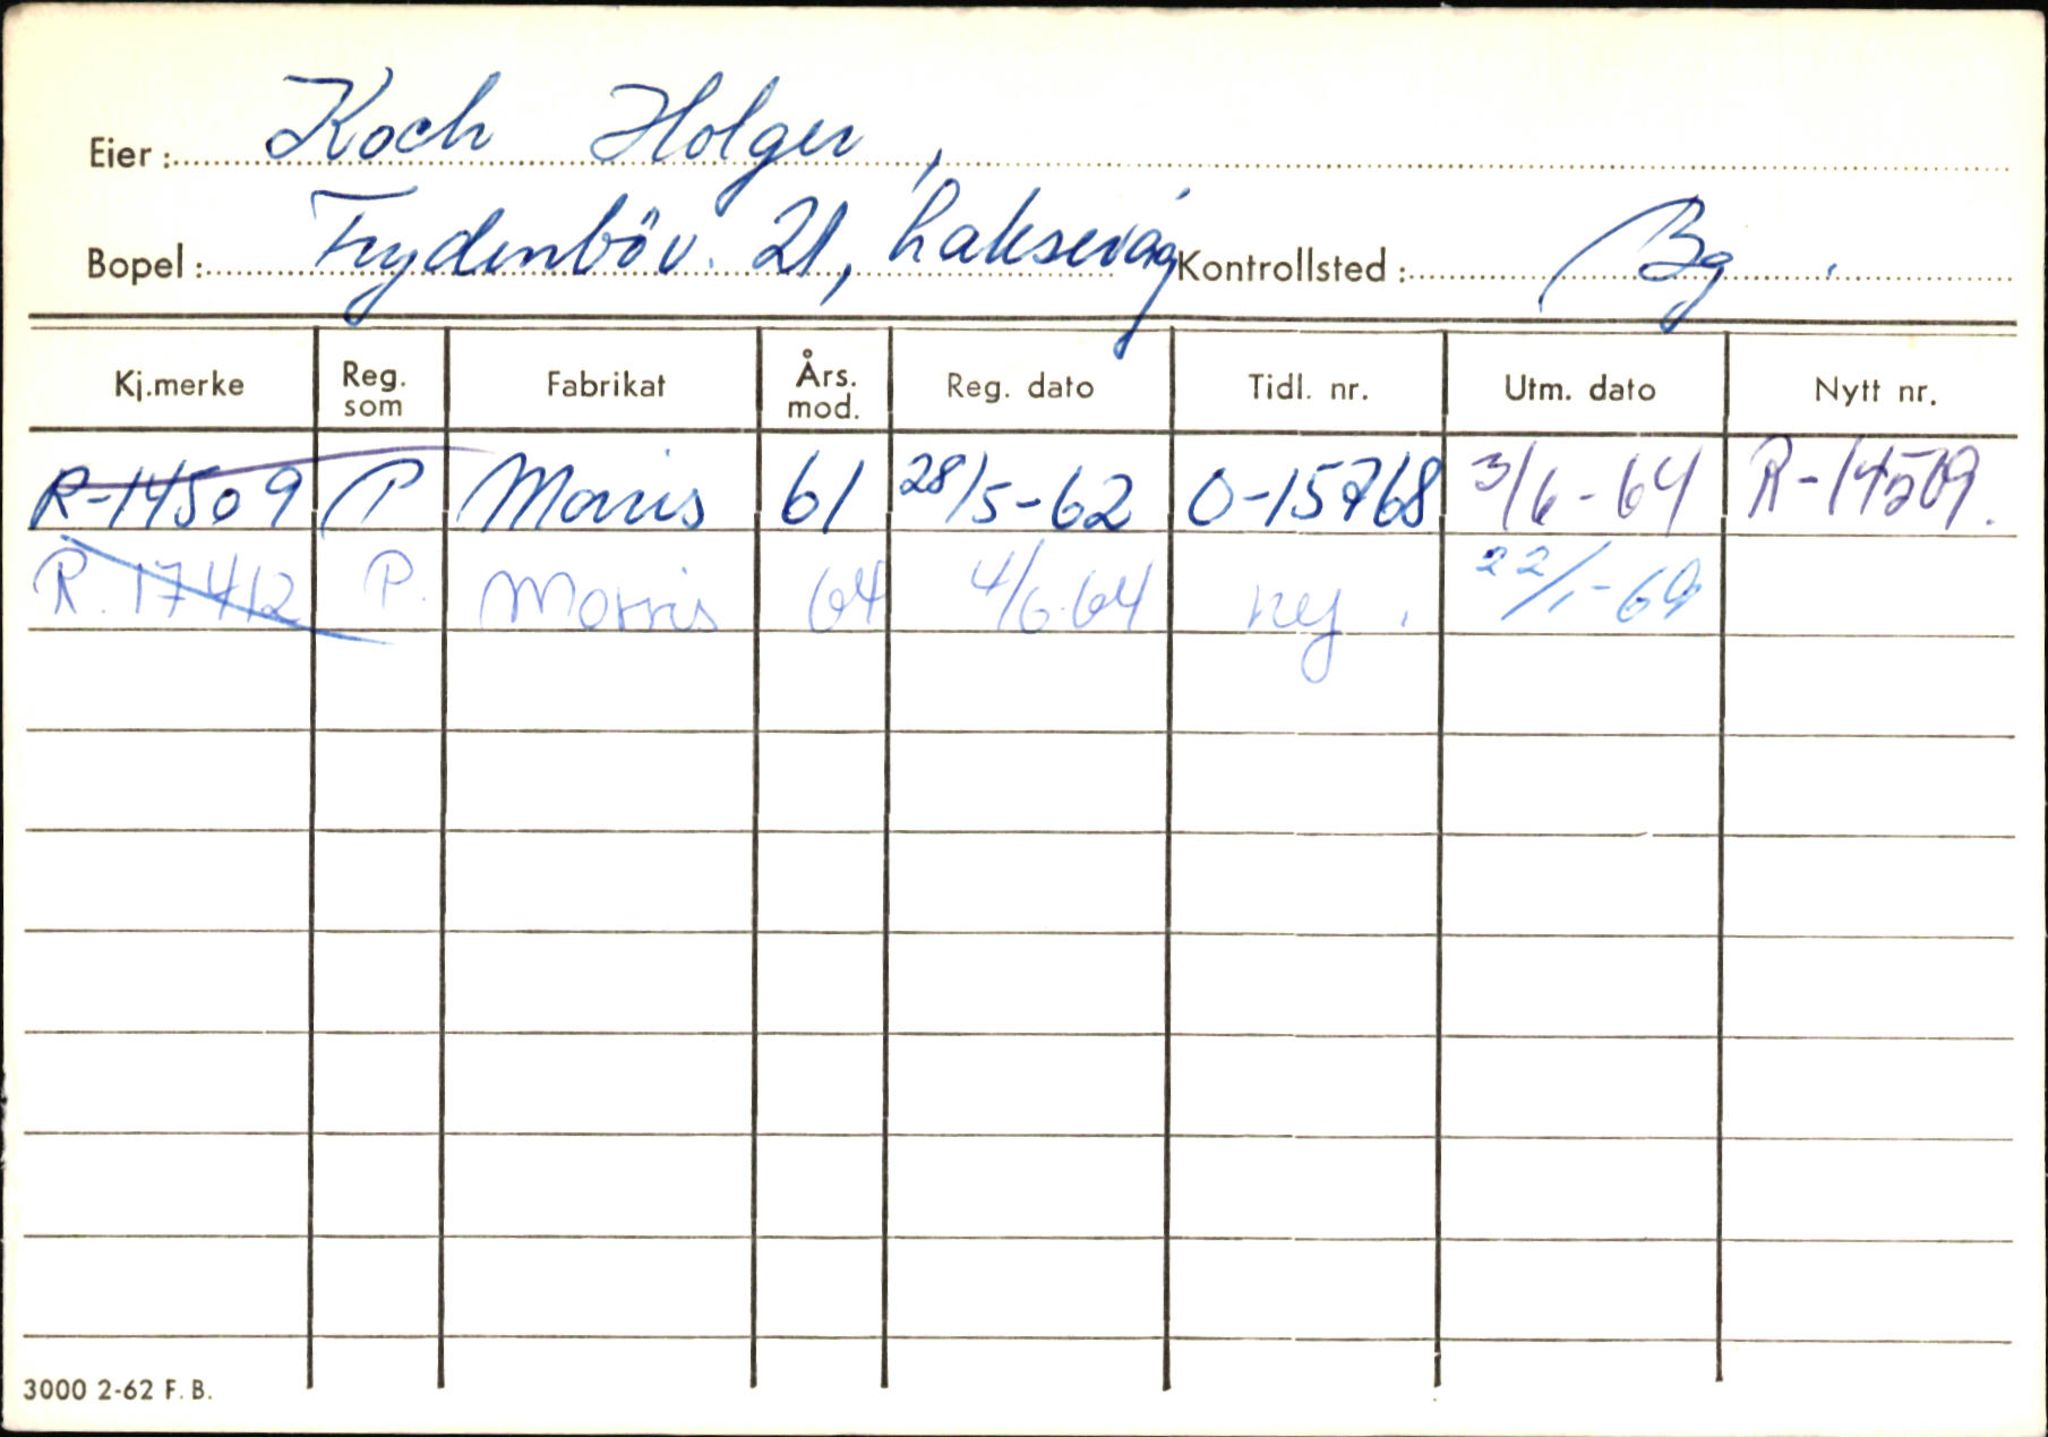 Eier: Koch Holger,
Bopel: Frydenböv. 21, Laksevåg Kontrollsted: Bg.
Kj.merke Reg. som Fabrikat Års. mod. Reg. dato Tidl. nr. Utm. dato Nytt nr.
R-14509 P Morris 61 28/5-62 O-15768 3/6-64 R-14509.
R.17412 P. Morris 64 4/6-64 ny. 22/1-69
3000 2-62 F. B.